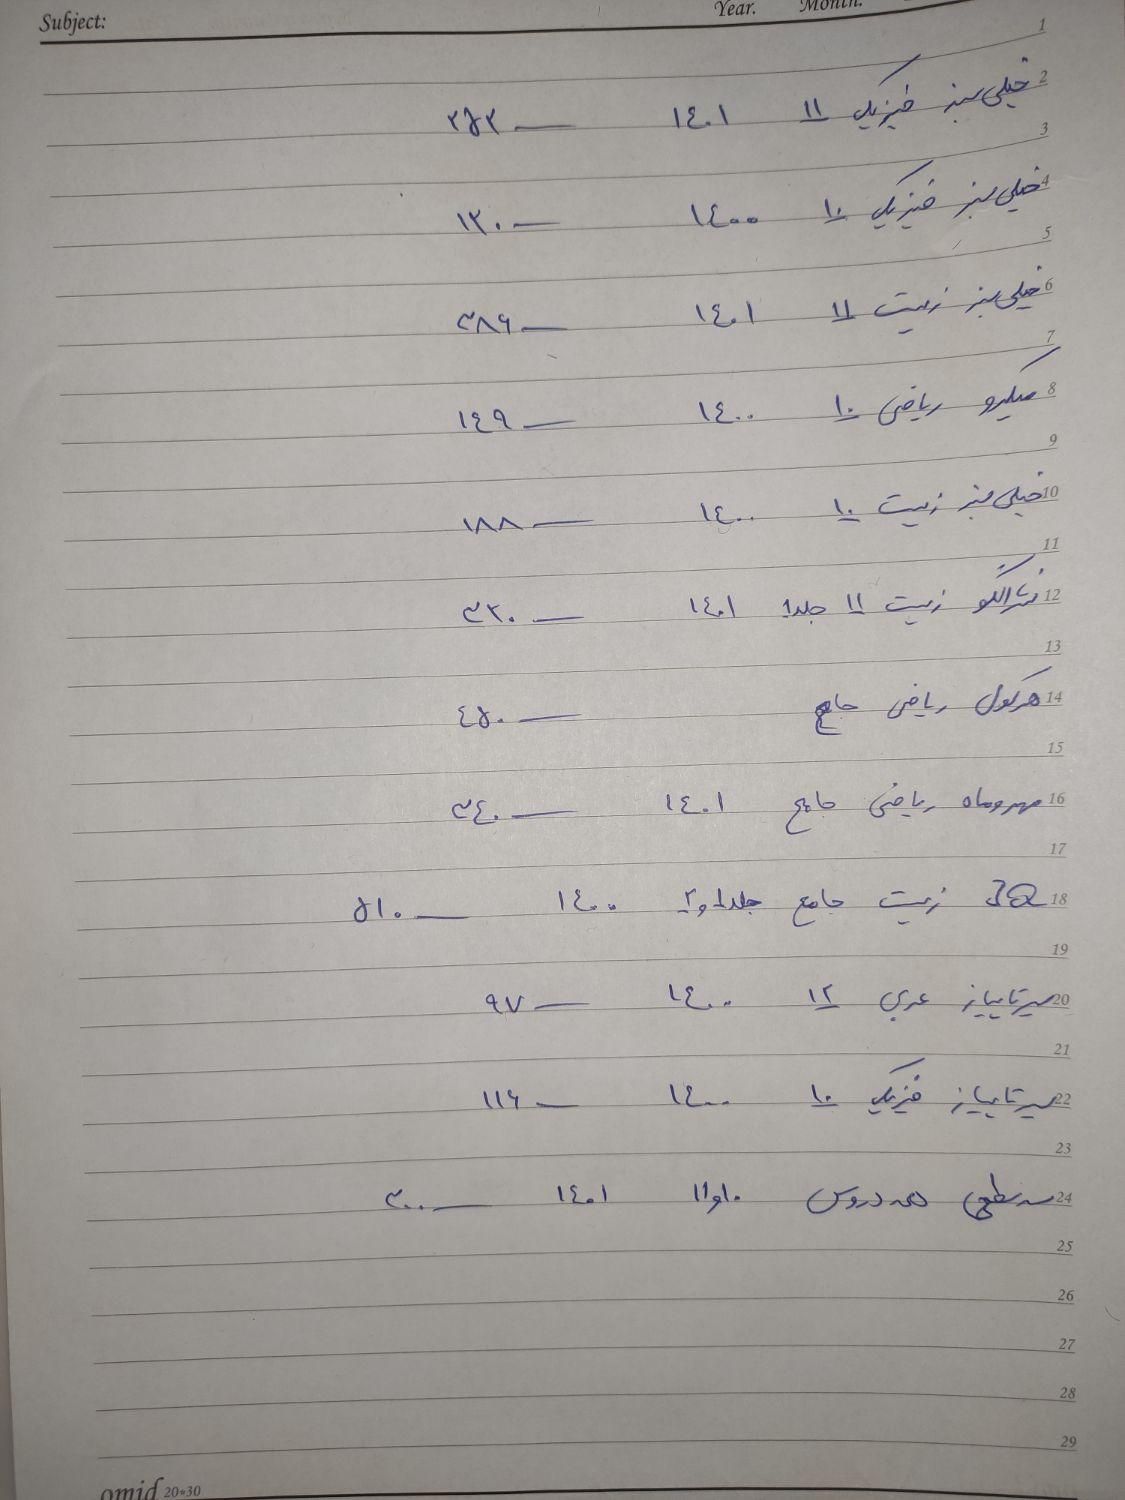 Subject:
Year. Month.
1
2 خیلی سبز فیزیک ۱۱ ۱٤۰۱ — ۲۵۲
3
4 خیلی سبز فیزیک ۱۰ ۱٤۰۰ — ۱۲۰
5
6 خیلی سبز زیست ۱۱ ۱٤۰۱ — ۳۸۶
7
8 میکرو ریاضی ۱۰ ۱٤۰۰ — ۱٤۹
9
10 خیلی سبز زیست ۱۰ ۱٤۰۰ — ۱۸۸
11
12 نشرالگو زیست ۱۱ جلد۱ ۱٤۰۱ — ۳۲۰
13
14 هرکول ریاضی جامع — ٤۵۰
15
16 مهروماه ریاضی جامع ۱٤۰۱ — ۳٤۰
17
18 IQ زیست جامع جلد۱و۲ ۱٤۰۰ — ۵۱۰
19
20 سیرتاپیاز عربی ۱۲ ۱٤۰۰ — ۹۷
21
22 سیرتاپیاز فیزیک ۱۰ ۱٤۰۰ — ۱۱۶
23
24 سه سطحی همه دروس ۱۰و۱۱ ۱٤۰۱ — ۳۰۰
25
26
27
28
29
omid 20*30